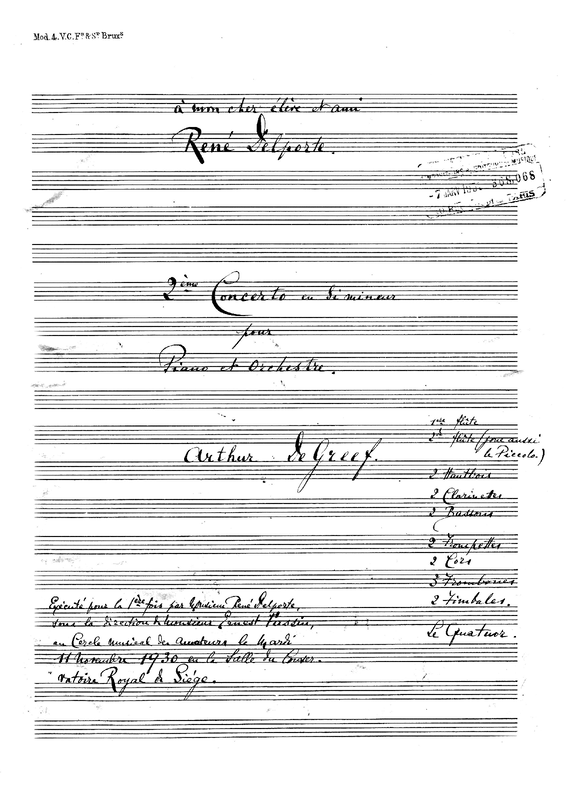 Mod. 4. V.C. Fs & Sr Bruxs
à mon cher élève et ami
René Delporte.
868,068
PARIS
2ème Concerto en si mineur
pour
Piano et Orchestre.
Arthur De Greef.
1ère flûte
2de flûte (joue aussi
le Piccolo.)
2 Hautbois
2 Clarinettes
2 Bassons
2 Trompettes
2 Cors
3 Trombones
2 Timbales.
Le Quatuor.
Exécuté pour la 1ère fois par Monsieur René Delporte,
sous la direction de Monsieur Ernest
au Cercle musical des amateurs le Mardi
11 Novembre 1930 en la Salle du Conser-
vatoire Royal de Liége.